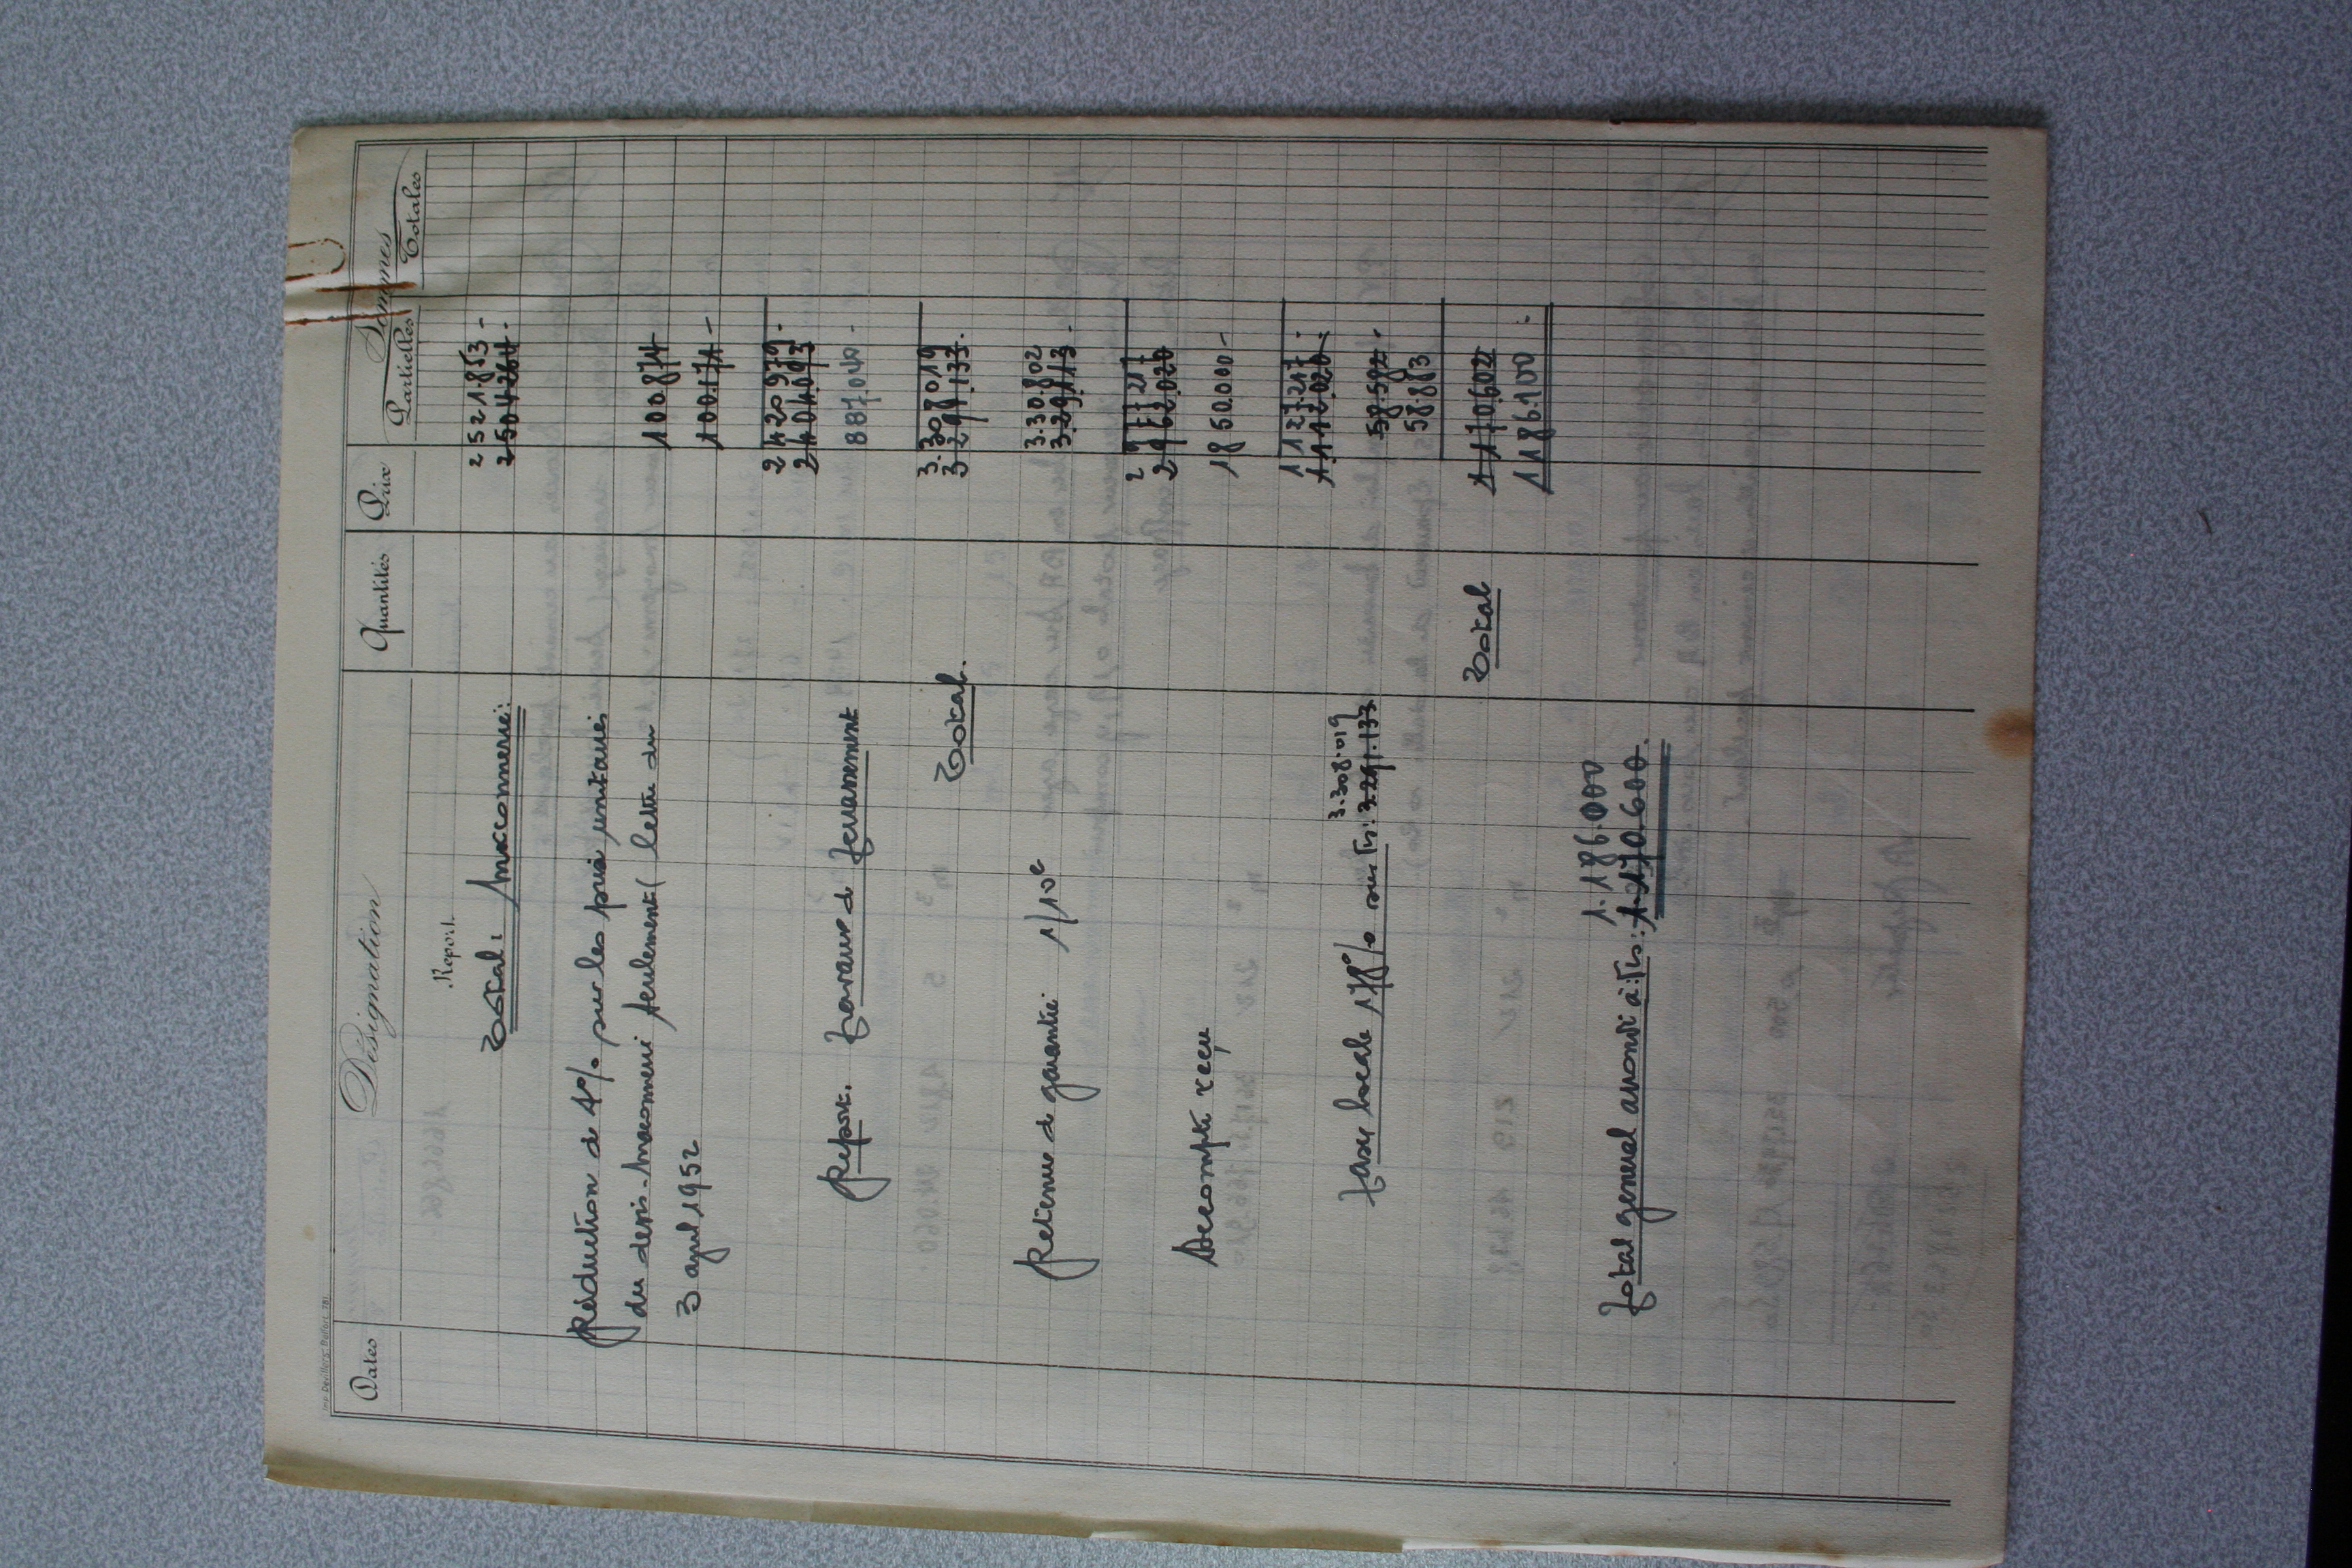 Imp. Devillers, Belfort. 781
Dates Désignation Quantités Prix Sommes
Partielles Totales
Report.
2 521.853 -
Total: Maccomerie: 2504264.-
Réduction de 4% sur les prix unitaires
du devis-Maccomerie seulement ( lettre du 100874
3 avril 1952 100.171 -
2 420 979.
2 404.093
Report. Travaux de terrassement 887.040 -
3.308 019
Total. 3 291.133.
3.30.802
Retenue de garantie 1/10e 3.29.113.-
2 977 217
2 962.020
Accompte reçu 1850.000 -
1 127.217
1.112.020.-
3.308.019
Taxe locale 1,78% sur Frs: 3.291.133 58.582.-
58.883
Total 1 170.602
1 186.100.-
1.186.000
Total general arrondi à: Frs: 1.170.600.